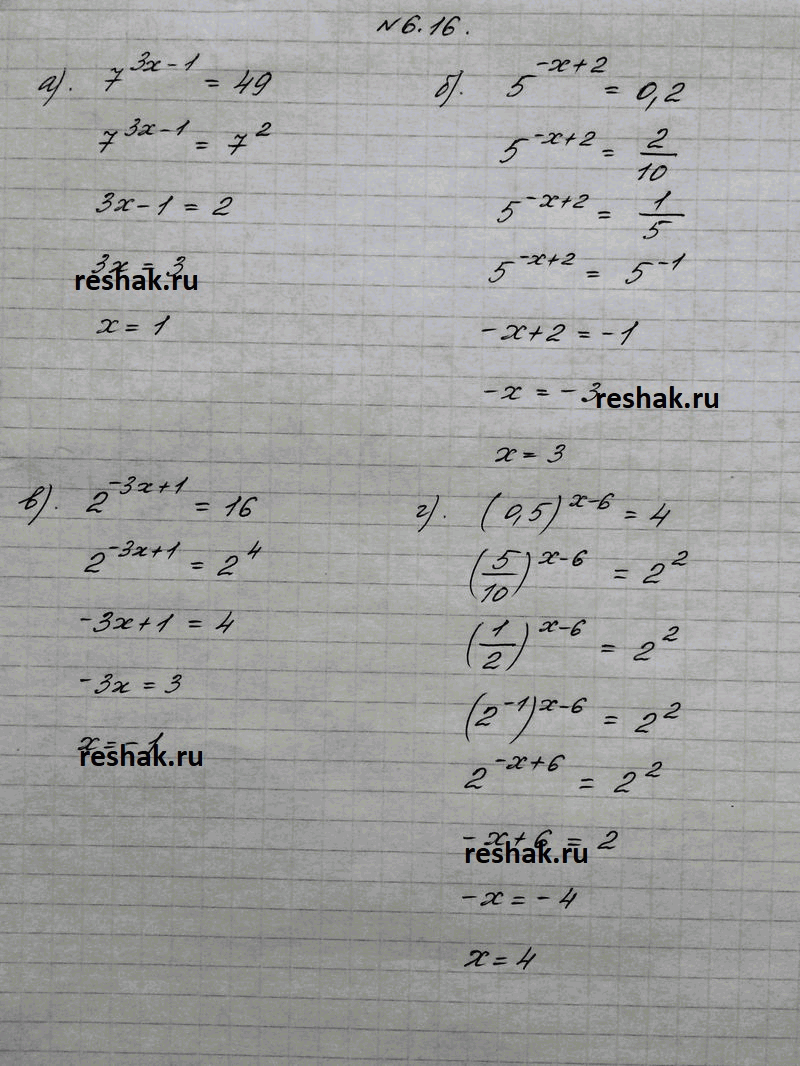 №6.16.
а). 7^{3x-1} = 49
7^{3x-1} = 7^2
3x-1 = 2
3x = 3
reshak.ru
x = 1
б). 5^{-x+2} = 0,2
5^{-x+2} = 2/10
5^{-x+2} = 1/5
5^{-x+2} = 5^{-1}
-x+2 = -1
-x = -3
reshak.ru
x = 3
в). 2^{-3x+1} = 16
2^{-3x+1} = 2^4
-3x+1 = 4
-3x = 3
x = -1
reshak.ru
г). (0,5)^{x-6} = 4
(5/10)^{x-6} = 2^2
(1/2)^{x-6} = 2^2
(2^{-1})^{x-6} = 2^2
2^{-x+6} = 2^2
-x+6 = 2
reshak.ru
-x = -4
x = 4